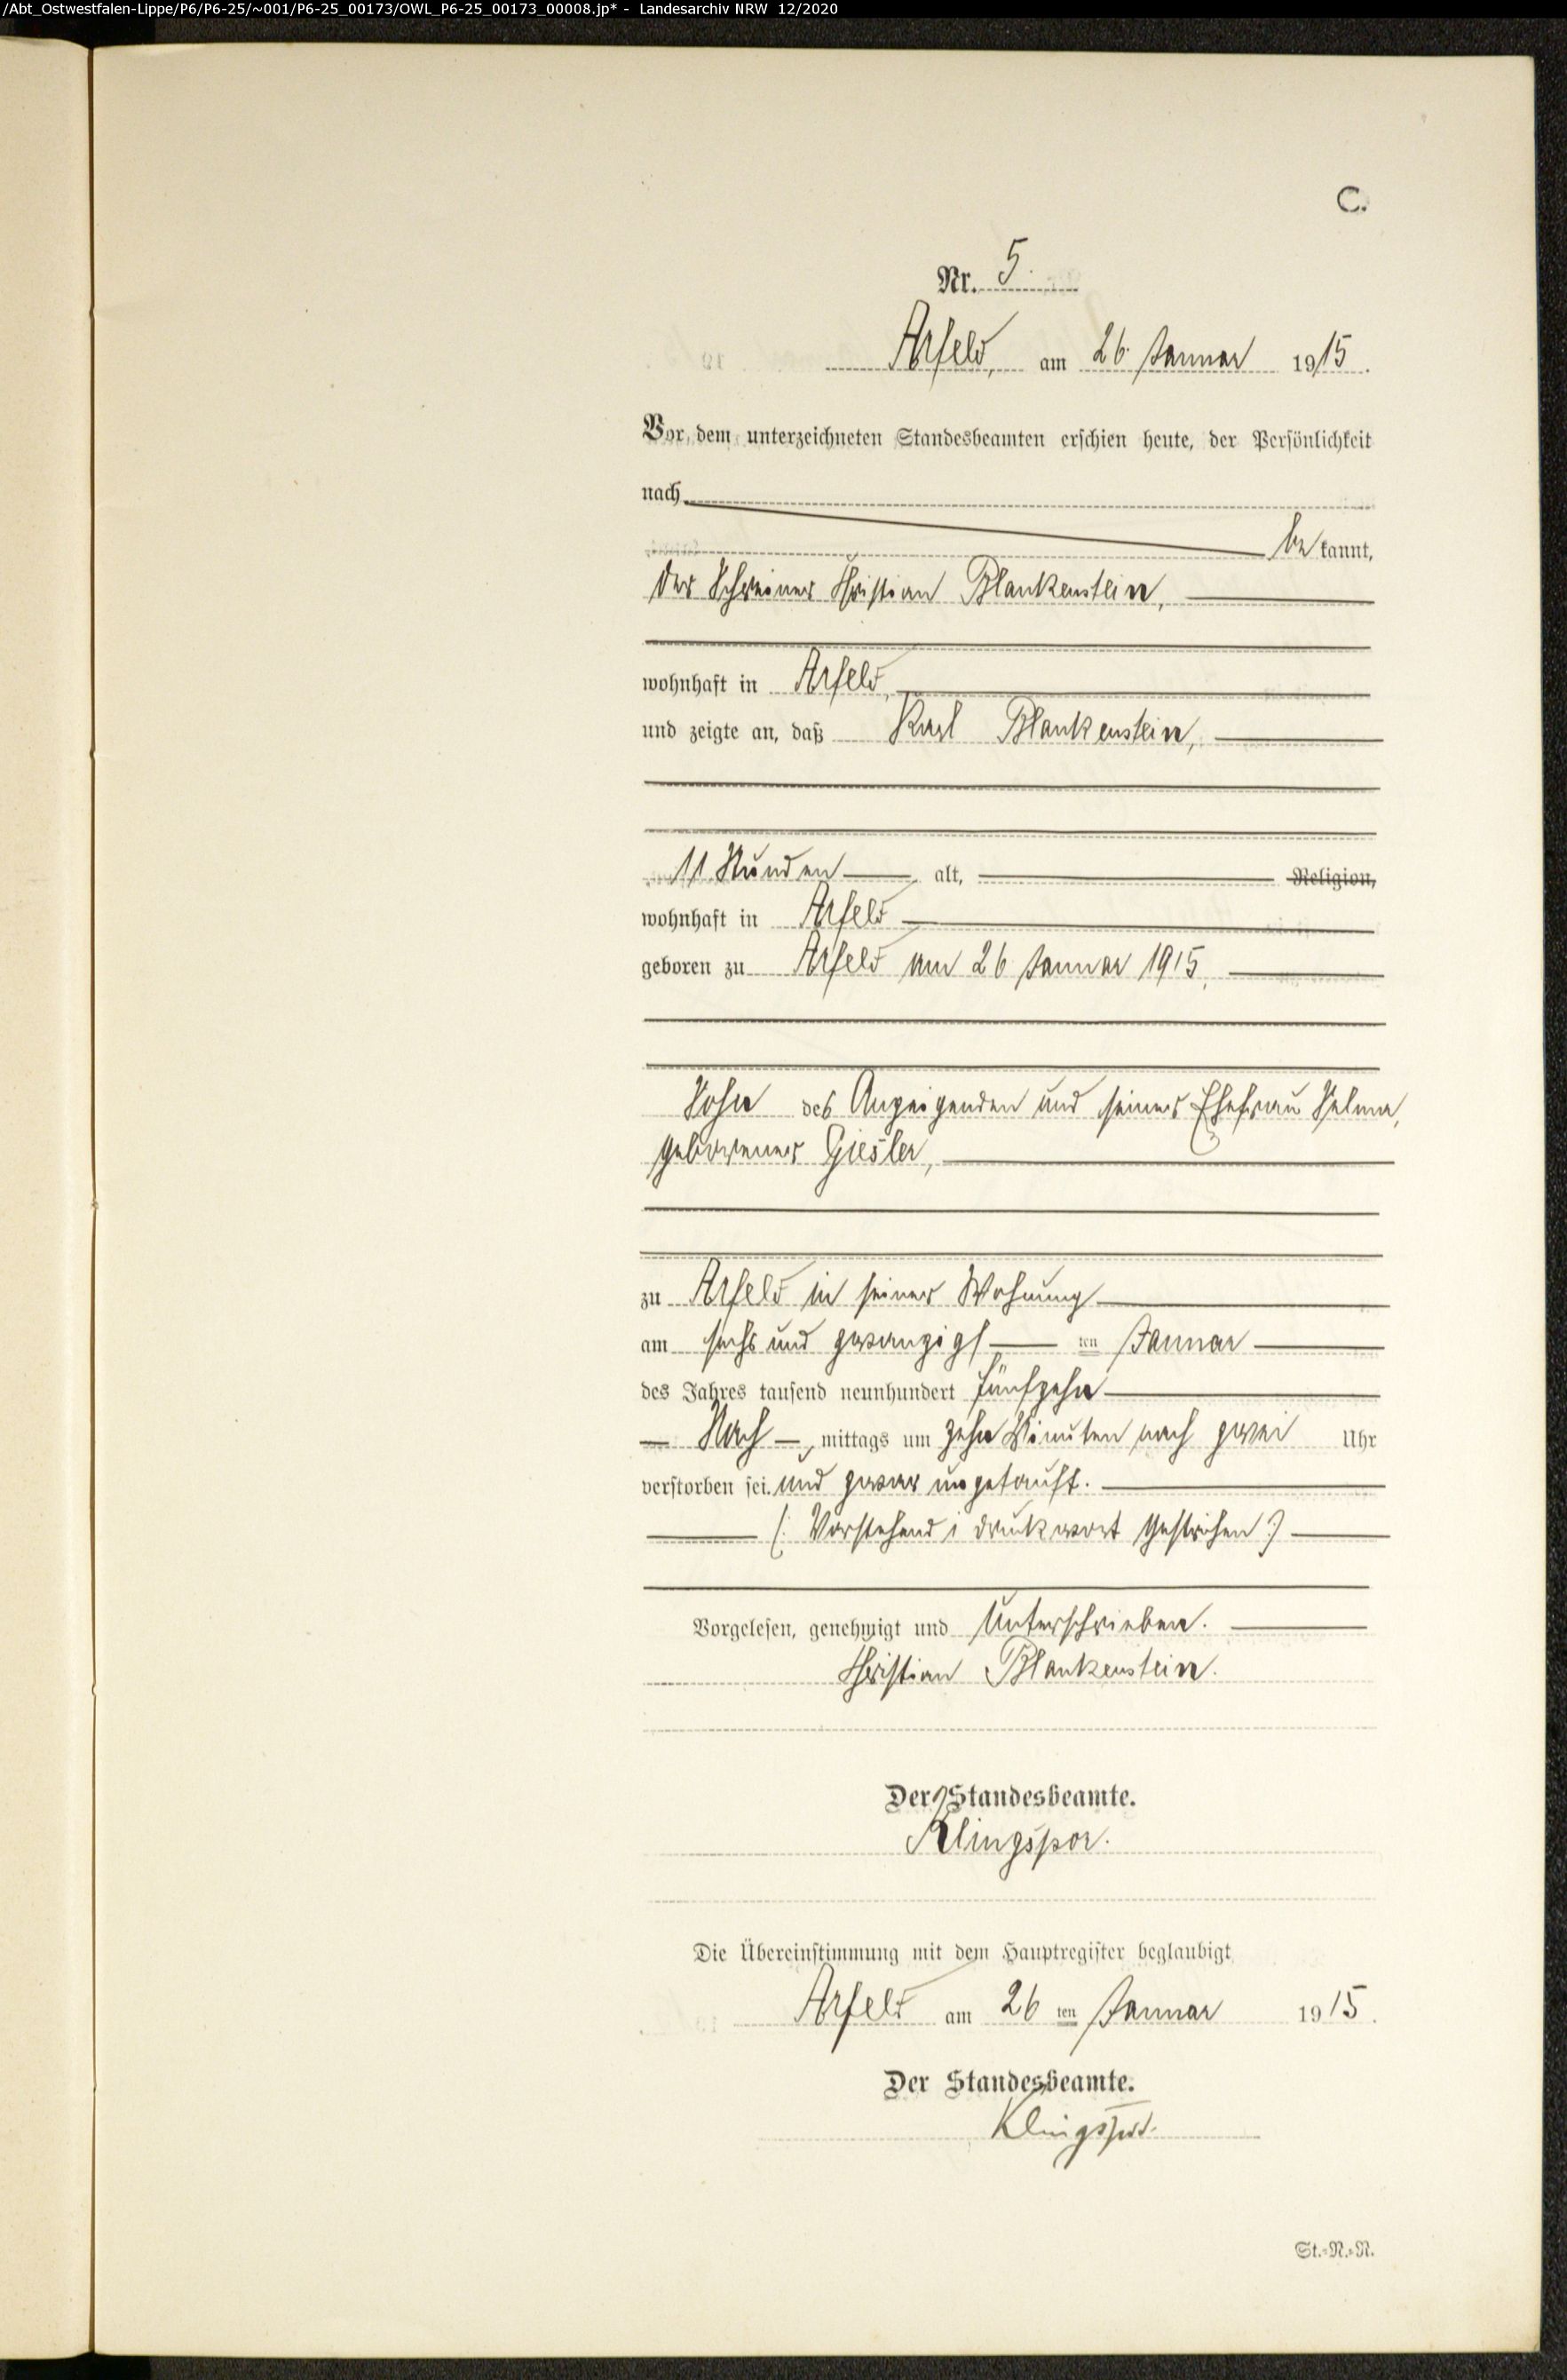 /Abt_Ostwestfalen-Lippe/P6/P6-25/~001/P6-25_00173/OWL_P6-25_00173_00008.jp* - Landesarchiv NRW 12/2020
C.
Nr. 5.
Arfeld, am 26. Januar 1915.
Vor dem unterzeichneten Standesbeamten erschien heute, der Persönlichkeit
nach
be kannt,
der Schreiner Christian Blankenstein,
wohnhaft in Arfeld,
und zeigte an, daß Karl Blankenstein,
11 Stunden alt, Religion,
wohnhaft in Arfeld
geboren zu Arfeld am 26. Januar 1915,
Sohn des Anzeigenden und seiner Ehefrau Selma,
geborener Giesler,
zu Arfeld in seiner Wohnung
am sechs und zwanzigs ten Januar
des Jahres tausend neunhundert fünfzehn
Nach mittags um zehn Minuten nach zwei Uhr
verstorben sei. und zwar ungetauft.
(: Vorstehend 1 Druckwort gestrichen :)
Vorgelesen, genehmigt und Unterschrieben.
Christian Blankenstein.
Der Standesbeamte.
Klingspor.
Die Übereinstimmung mit dem Hauptregister beglaubigt
Arfeld am 26 ten Januar 1915.
Der Standesbeamte.
Klingspor.
St.=R.=N.